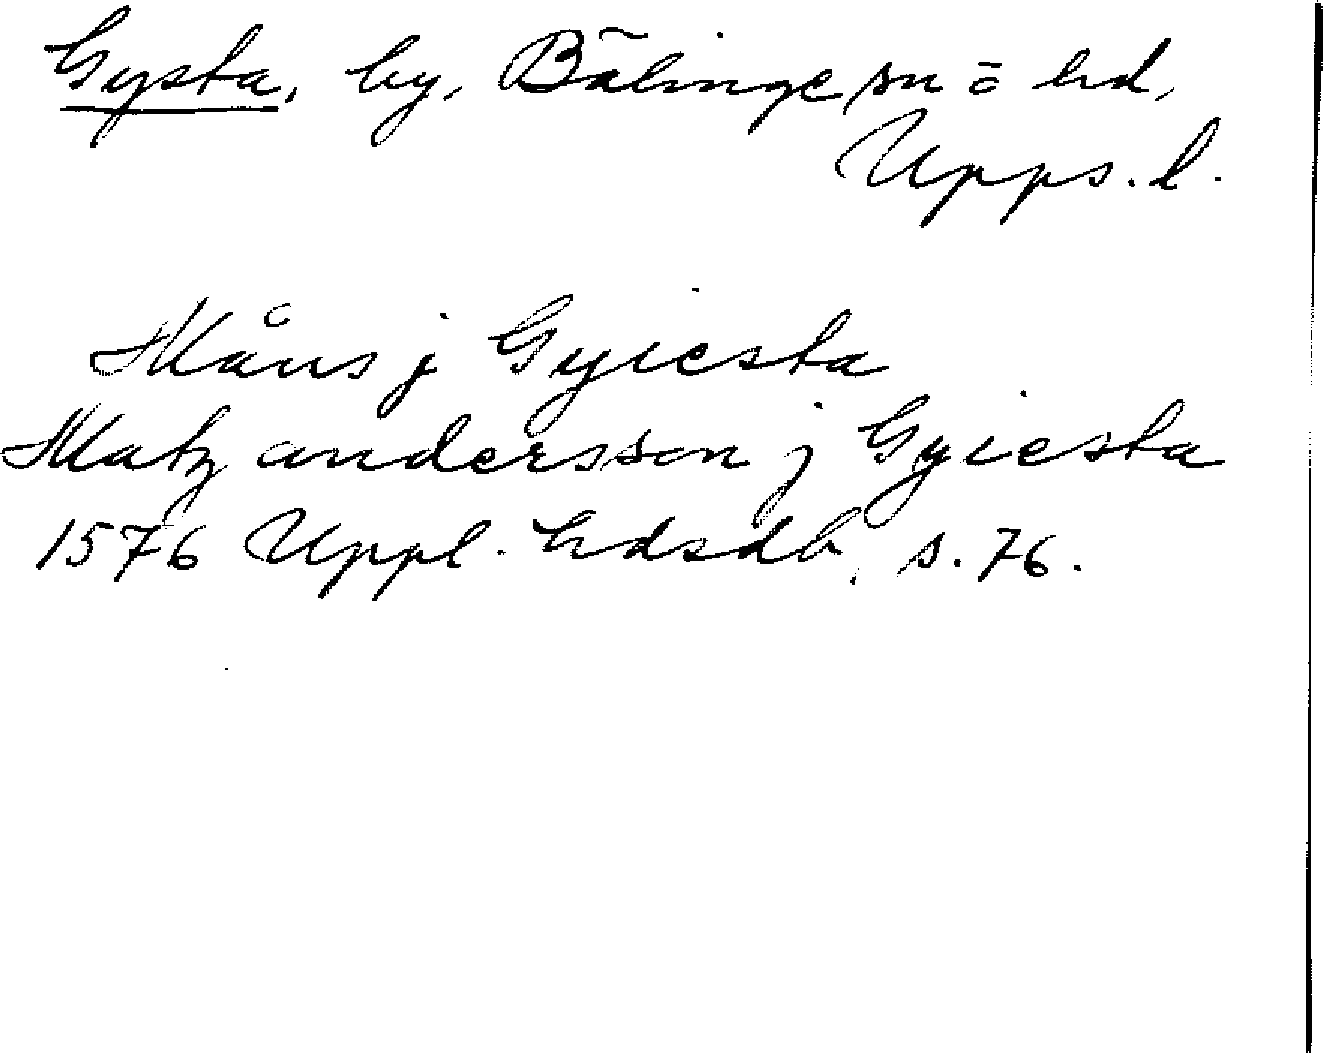 Gysta, by, Bälinge sn o hd,
Upps. l.
Måns j Gyiesta
Matz andersson j Gyiesta
1576 Uppl. hdsdb, s. 76.